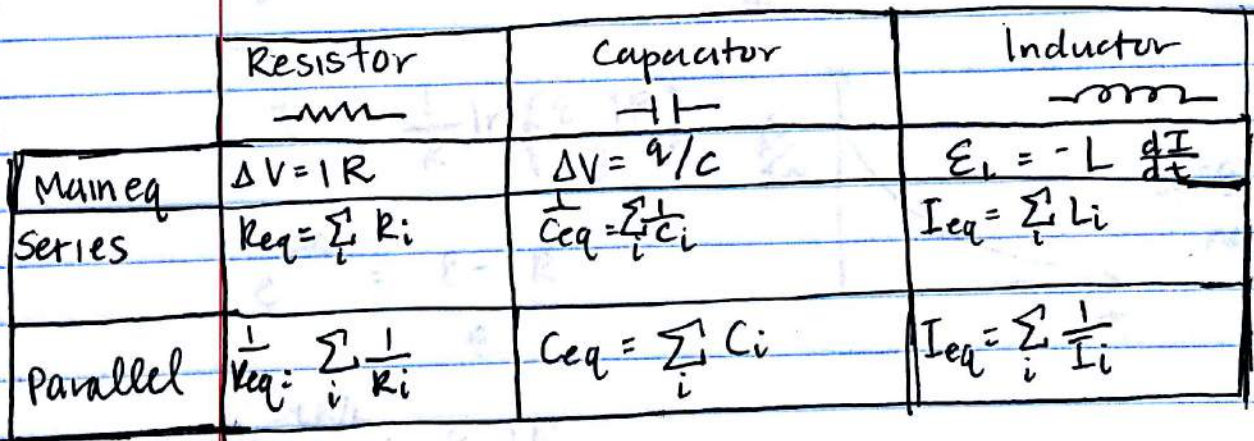 Resistor Capacitor Inductor
Main eq ΔV = IR ΔV = q/C ε_L = -L dI/dt
Series Req = Σ_i Ri 1/Ceq = Σ_i 1/Ci Ieq = Σ_i Li
Parallel 1/Req = Σ_i 1/Ri Ceq = Σ_i Ci Ieq = Σ_i 1/Ii